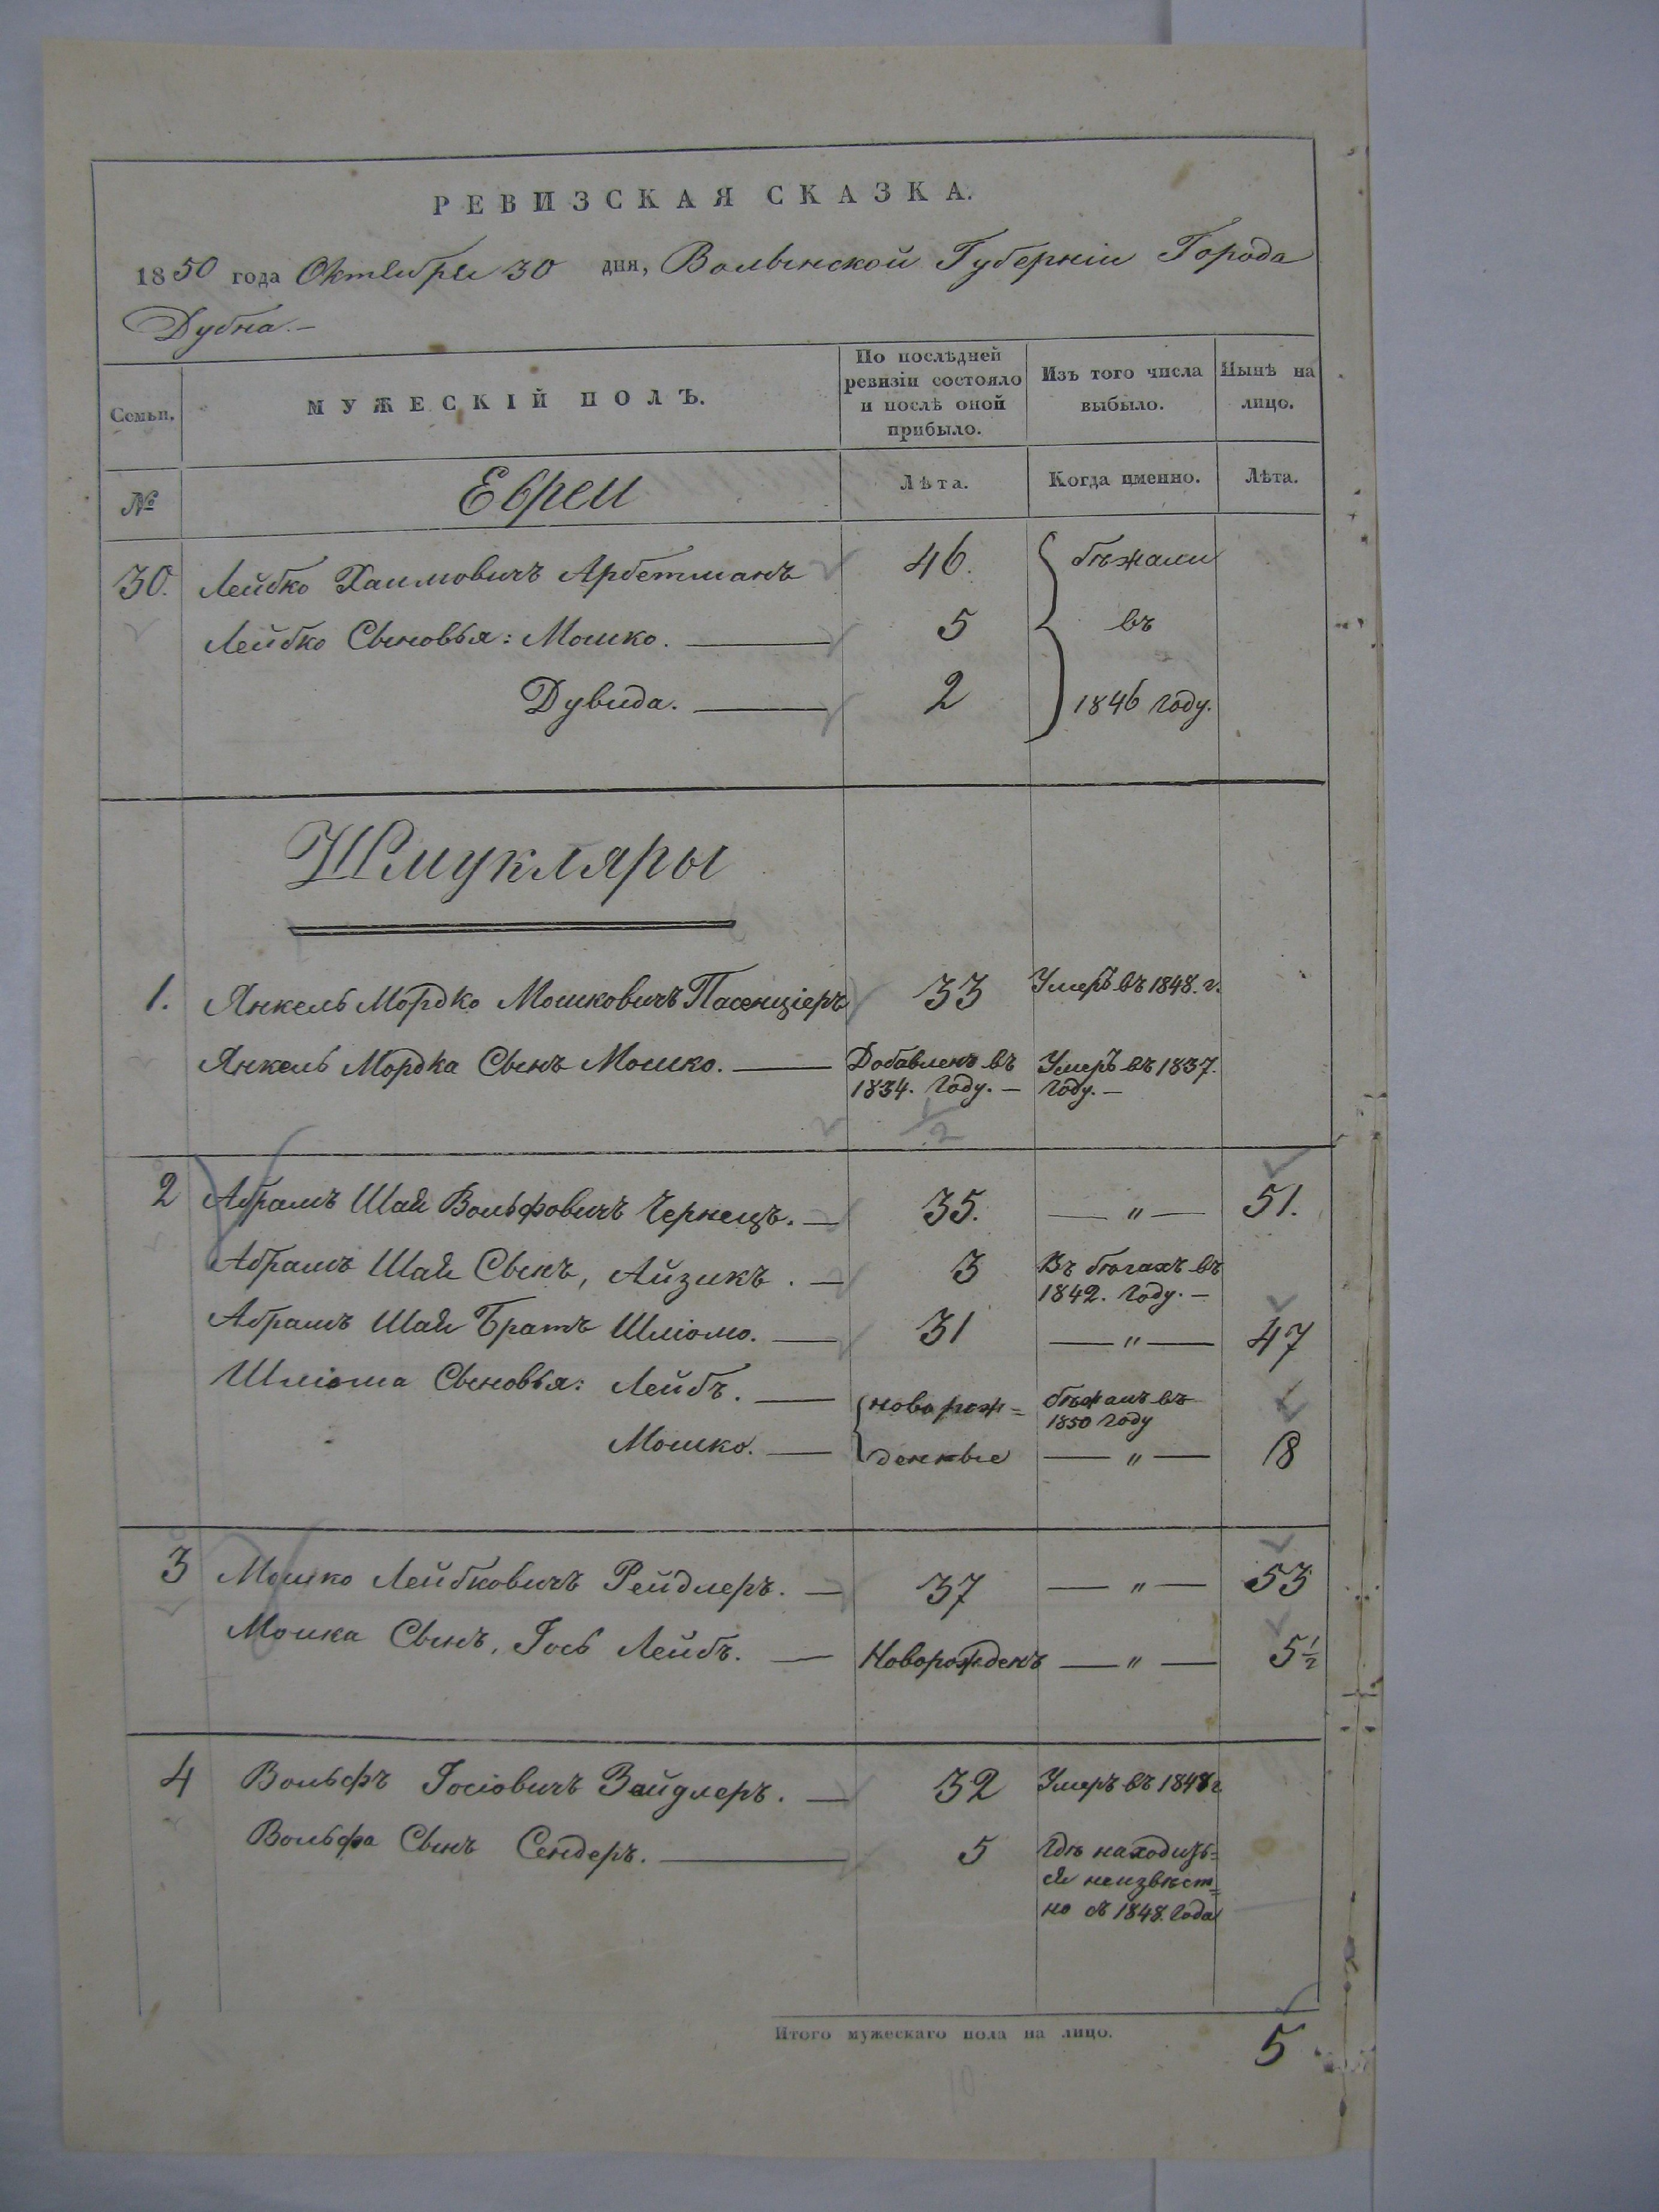 РЕВИЗСКАЯ СКАЗКА.
1850 года Октября 30 дня, Волынской Губерніи Города
Дубна.—
Семьи.
МУЖЕСКІЙ ПОЛЪ.
По послѣдней
ревизіи состояло
и послѣ оной
прибыло.
Изъ того числа
выбыло.
Нынѣ на
лицо.
№
Евреи
Лѣта.
Когда именно.
Лѣта.
30. Лейбко Хаимовичъ Арбетманъ 46. бѣжали
Лейбко Сыновья: Мошко. — 5 въ
Дувида. — 2 1846 году.
Шмукляры
1. Янкель Мордко Мошковичъ Пасенціеръ 33 Умеръ въ 1848. г.
Янкель Мордка Сынъ Мошко. — Добавленъ въ Умеръ въ 1837.
1834. Году. — Году. —
1/2
2 Абрамъ Шая Вольфовичъ Чернецъ. — 35. — „ — 51.
Абрамъ Шая Сынъ, Айзикъ. — 3 Въ бѣгахъ въ
1842. Году. —
Абрамъ Шая Братъ Шліомо. — 31 — „ — 47
Шліома Сыновья: Лейбъ. — новорож= бѣжалъ въ
1850 Году
Мошко. — денные — „ — 18
3 Мошко Лейбковичъ Рейдлеръ. — 37 — „ — 53
Мошка Сынъ, Іось Лейбъ. — Новорожденъ — „ — 5½
4 Вольфъ Іосіовичъ Зайдлеръ. — 32 Умеръ въ 1848 г
Вольфа Сынъ Сендеръ. — 5 Гдѣ находить=
ся неизвѣст=
но съ 1848. Года
Итого мужескаго пола на лицо. 5